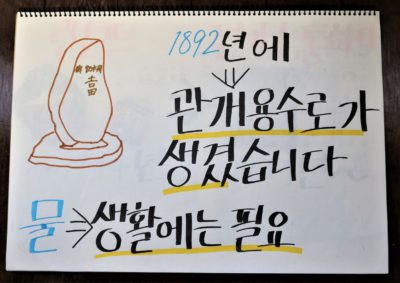 1892년에
관개용수로가
생겼습니다
물⇒생활에는 필요